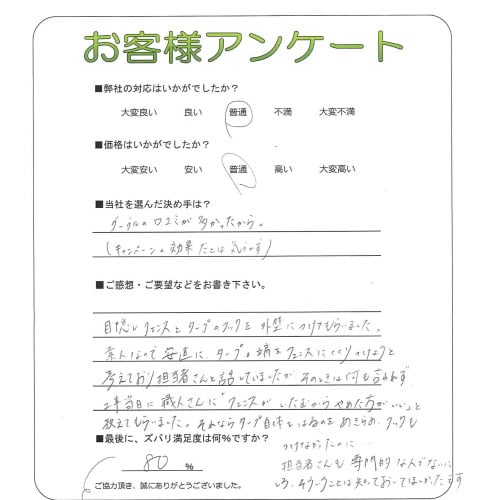 お客様アンケート
■弊社の対応はいかがでしたか?
大変良い 良い 普通 不満 大変不満
■価格はいかがでしたか?
大変安い 安い 普通 高い 大変高い
■当社を選んだ決め手は?
グーグルの口コミが多かったから。
(キャンペーンの効果だとは気づかず)
■ご感想・ご要望などをお書き下さい。
目隠しフェンスとタープのフックを外壁につけてもらいました。
素人なので安直に、タープの端をフェンスにくくりつけようと
考えており担当者さんと話していましたが そのときは何も言われず、
工事当日に職人さんに「フェンスが いたむからやめた方がいい」と
教えてもらいました。それならタープ自体をはるのをあきらめ、フックも
つけなかったのに…
■最後に、ズバリ満足度は何%ですか?
80 %
担当者さんも専門的な人でないに
しろ、そういうことは知っておいてほしかったです
ご協力頂き、誠にありがとうございました。